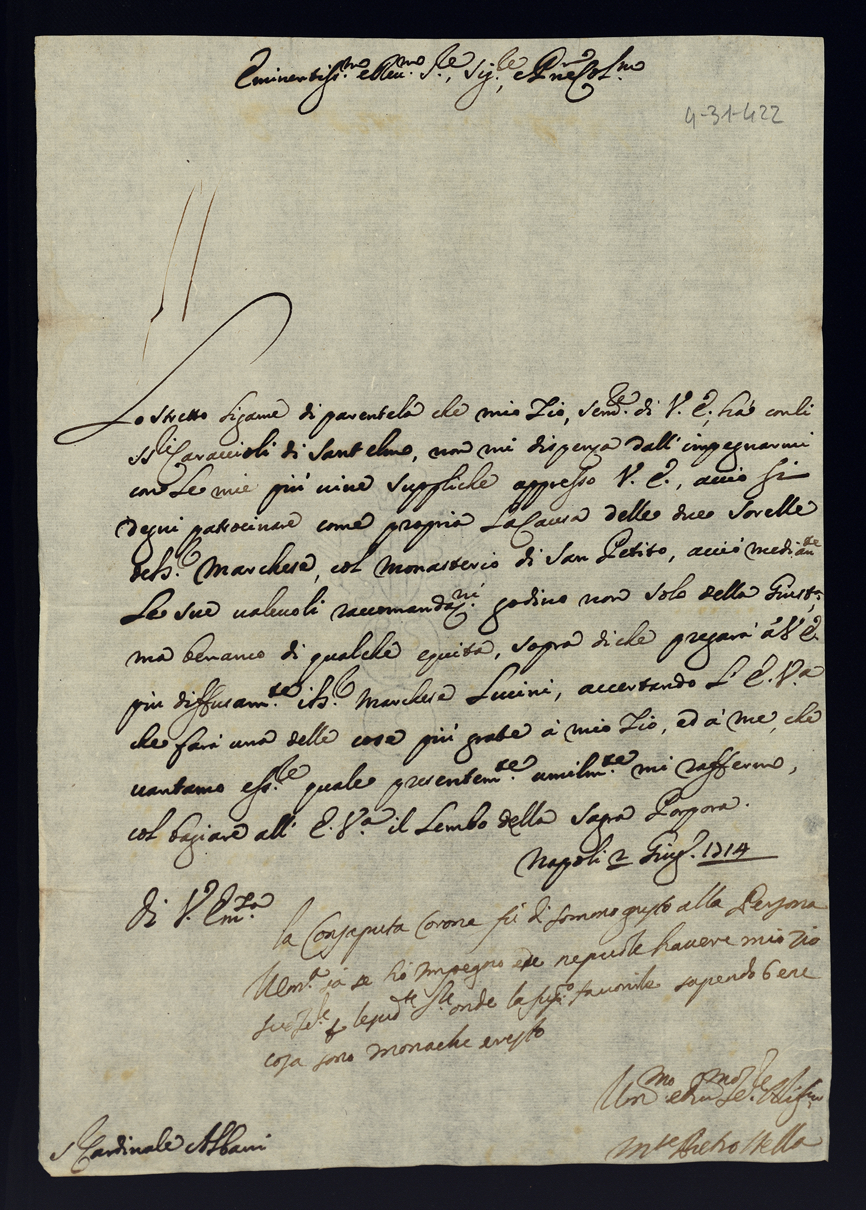 Eminentiss.mo e Reu.mo S.re, Sig.re e P.ne Col.mo
4-31-422
Lo stretto ligame di parentela che mio Zio, seru.re di V. E., há con li
SS.ri Caraccioli di Sant'elmo, non mi dispenza dall'impegnarmi
con le mie piú uiue suppliche appresso V. E., acció si
degni patrocinare come propria la Causa delle due Sorelle
del S.r Marchese, col monasterio di San Petito, acció mediante
le sue ualeuoli raccomandaz.ni godino non solo della Giust.a
ma benanco di qualche equitá, sopra di che pregará á V. E.
piú diffusam.te il S.r Marchese Lucini, accertando l'E. V.a
che fará una delle cose piú grate á mio Zio, ed á me, che
uantamo ess.le quale presentem.te umilm.te mi raffermo,
col bagiare all'E. V.a il lembo della Sagra Porpora.
Napoli 2 Giug. 1714
Di V. Em.za
la Consaputa Corona fú di sommo gusto alla Persona
há impegno che ne puole hauere mio Zio
onde la favorite sapendo bene
cosa sono monache e resto
Um.mo
M.se Pietro Stella
S. Cardinale Albani